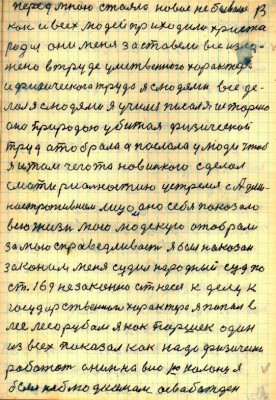 передмною стояло новые небывалое
как и всех людей приходили христа
ради они меня заставели все
нено втруде умственного характера
и физического труда я слюдями все де
лал я слюдями я учился писал я историю
она природою убитая физической
труд отобрала а послала улюди чтоб
я итам чегота новинкого сделал
устремился Адми
нистротивным лицом оно себя показало
всю жизнь мою людскую отобрали
замою справедливаст я был наказан
закониим меня судил народный суд по
ст. 169 незаконно отнеся к делу к
государственного характера я попал в
лес лесорубам я как паршек один
из всех показал как надо физически
работат они на
был наблюдкомам асвабажден